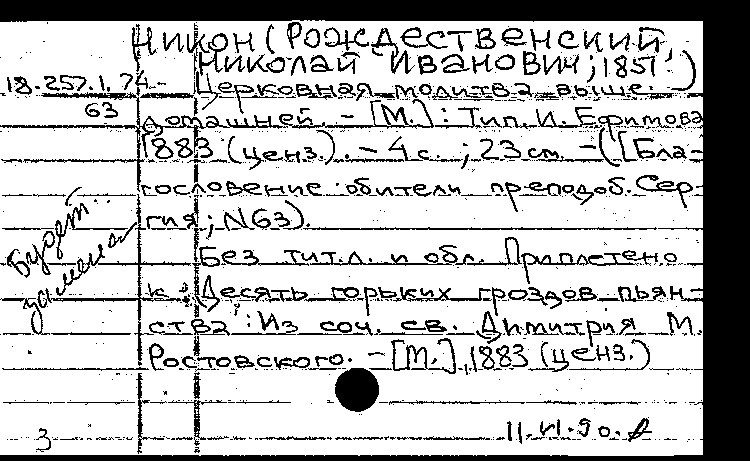 Никон (Рождественский,
Николай Иванович; 1851- )
18.257.1.74-
63
Церковная молитва выше
домашней. - [М.] : Тип. И. Ефимова
1883 (ценз.). - 4 с. ; 23 см. - ([Бла-
гословение обители преподоб. Сер-
гия ; N63).
Будет
замена
Без тит.л. и обл. Приплетено
к : Десять горьких гроздов пьян-
ства : Из соч. св. Димитрия М.
Ростовского. - [М.], 1883 (ценз.)
11.VI.90.
3